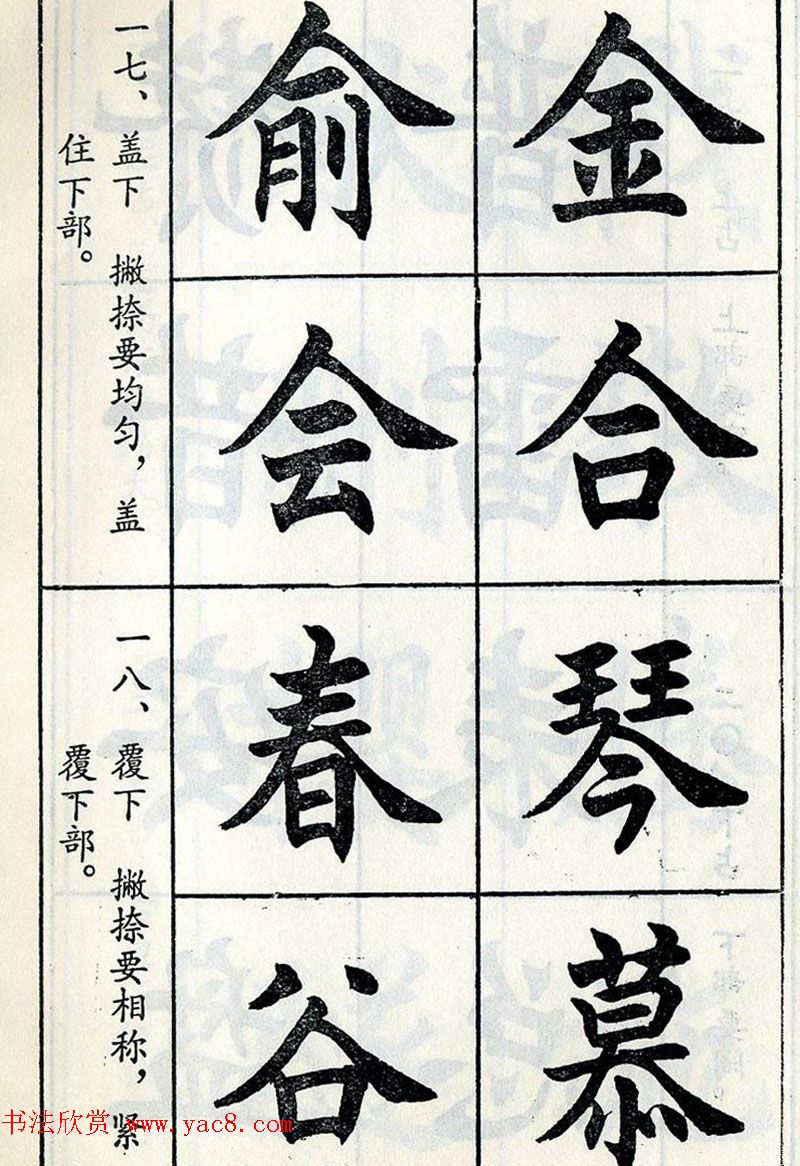 金合
俞会
一七、盖下 撇捺要均匀，盖
住下部。
琴慕
春谷
一八、覆下 撇捺要相称，紧
覆下部。
书法欣赏 www.yac8.com